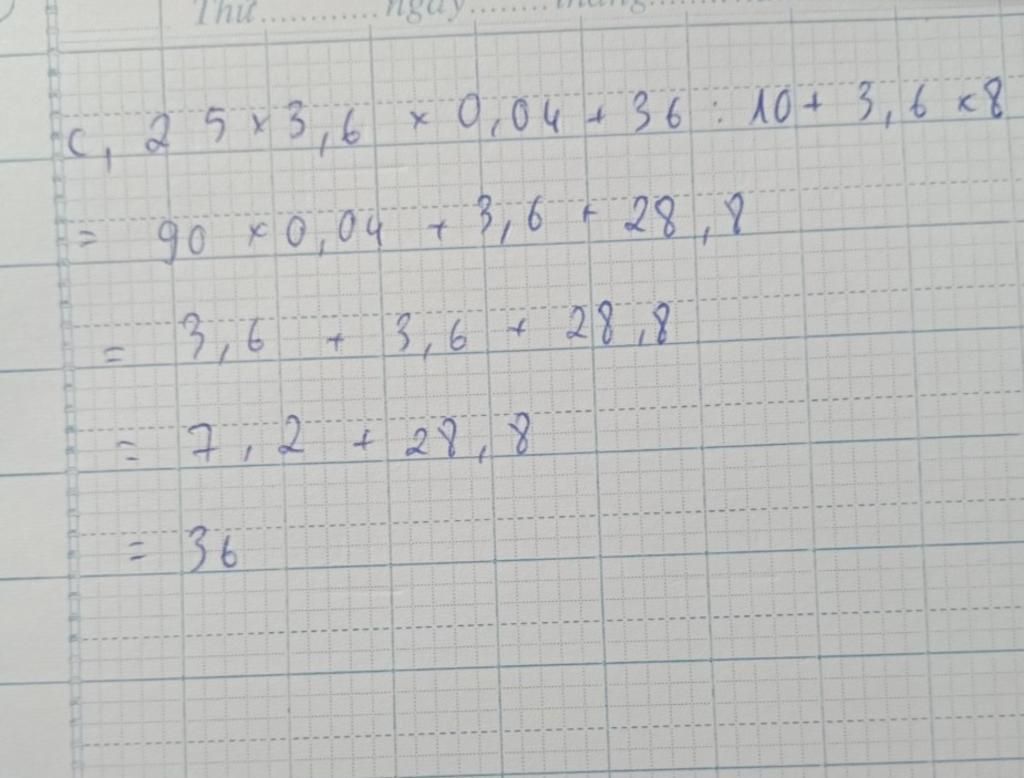 Thứ............ngày........tháng
c, 25 × 3,6 × 0,04 + 36 : 10 + 3,6 × 8
= 90 × 0,04 + 3,6 + 28,8
= 3,6 + 3,6 + 28,8
= 7,2 + 28,8
= 36